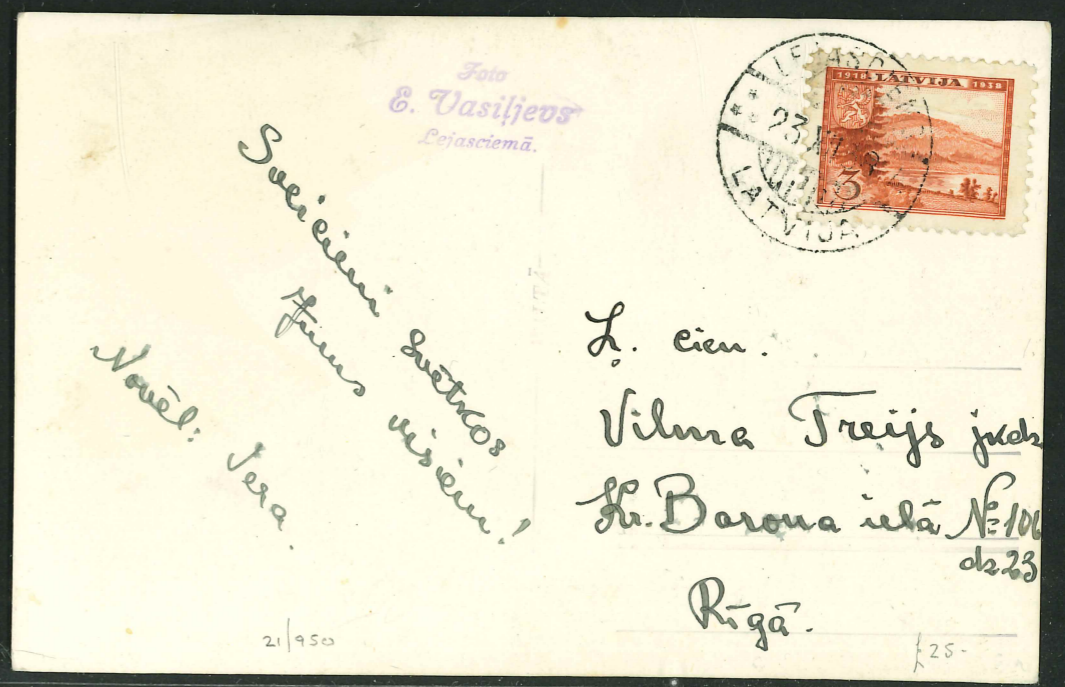 Foto
E. Vasiļjevs
Lejasciemā.
1918 LATVIJA 1938
3
23 XI
LATVIJA
Sveicieni svētkos
Jums visiem!
Novēl:
Ļ. cien.
Vilma Treijs jkdz
Kr. Barona ielā № 106
dz 23
Rīgā.
21/950
£25-